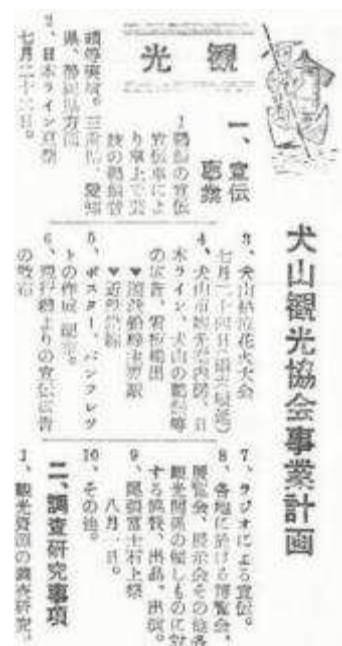 犬山観光協会事業計画
観光
一、宣伝
事業
1、鵜飼の宣伝
宣伝車によ
り車上で芸
妓の鵜飼音
県、静岡県方面
2、日本ライン夏祭
七月二十二日。
3、犬山納涼花火大会
4、犬山市観光案内図、日
本ライン、犬山の鵜飼等
の広告、看板掲出
5、ポスター、パンフレツ
トの作成、配布。
6、飛行機よりの宣伝広告
の散布
7、ラジオによる宣伝。
8、各地に於ける博覧会、
展覧会、展示会その他各
観光関係の催しものに対
する協賛、出品、出演。
9、尾張富士石上祭
八月一日。
10、その他。
二、調査研究事項
1、観光資源の調査研究。